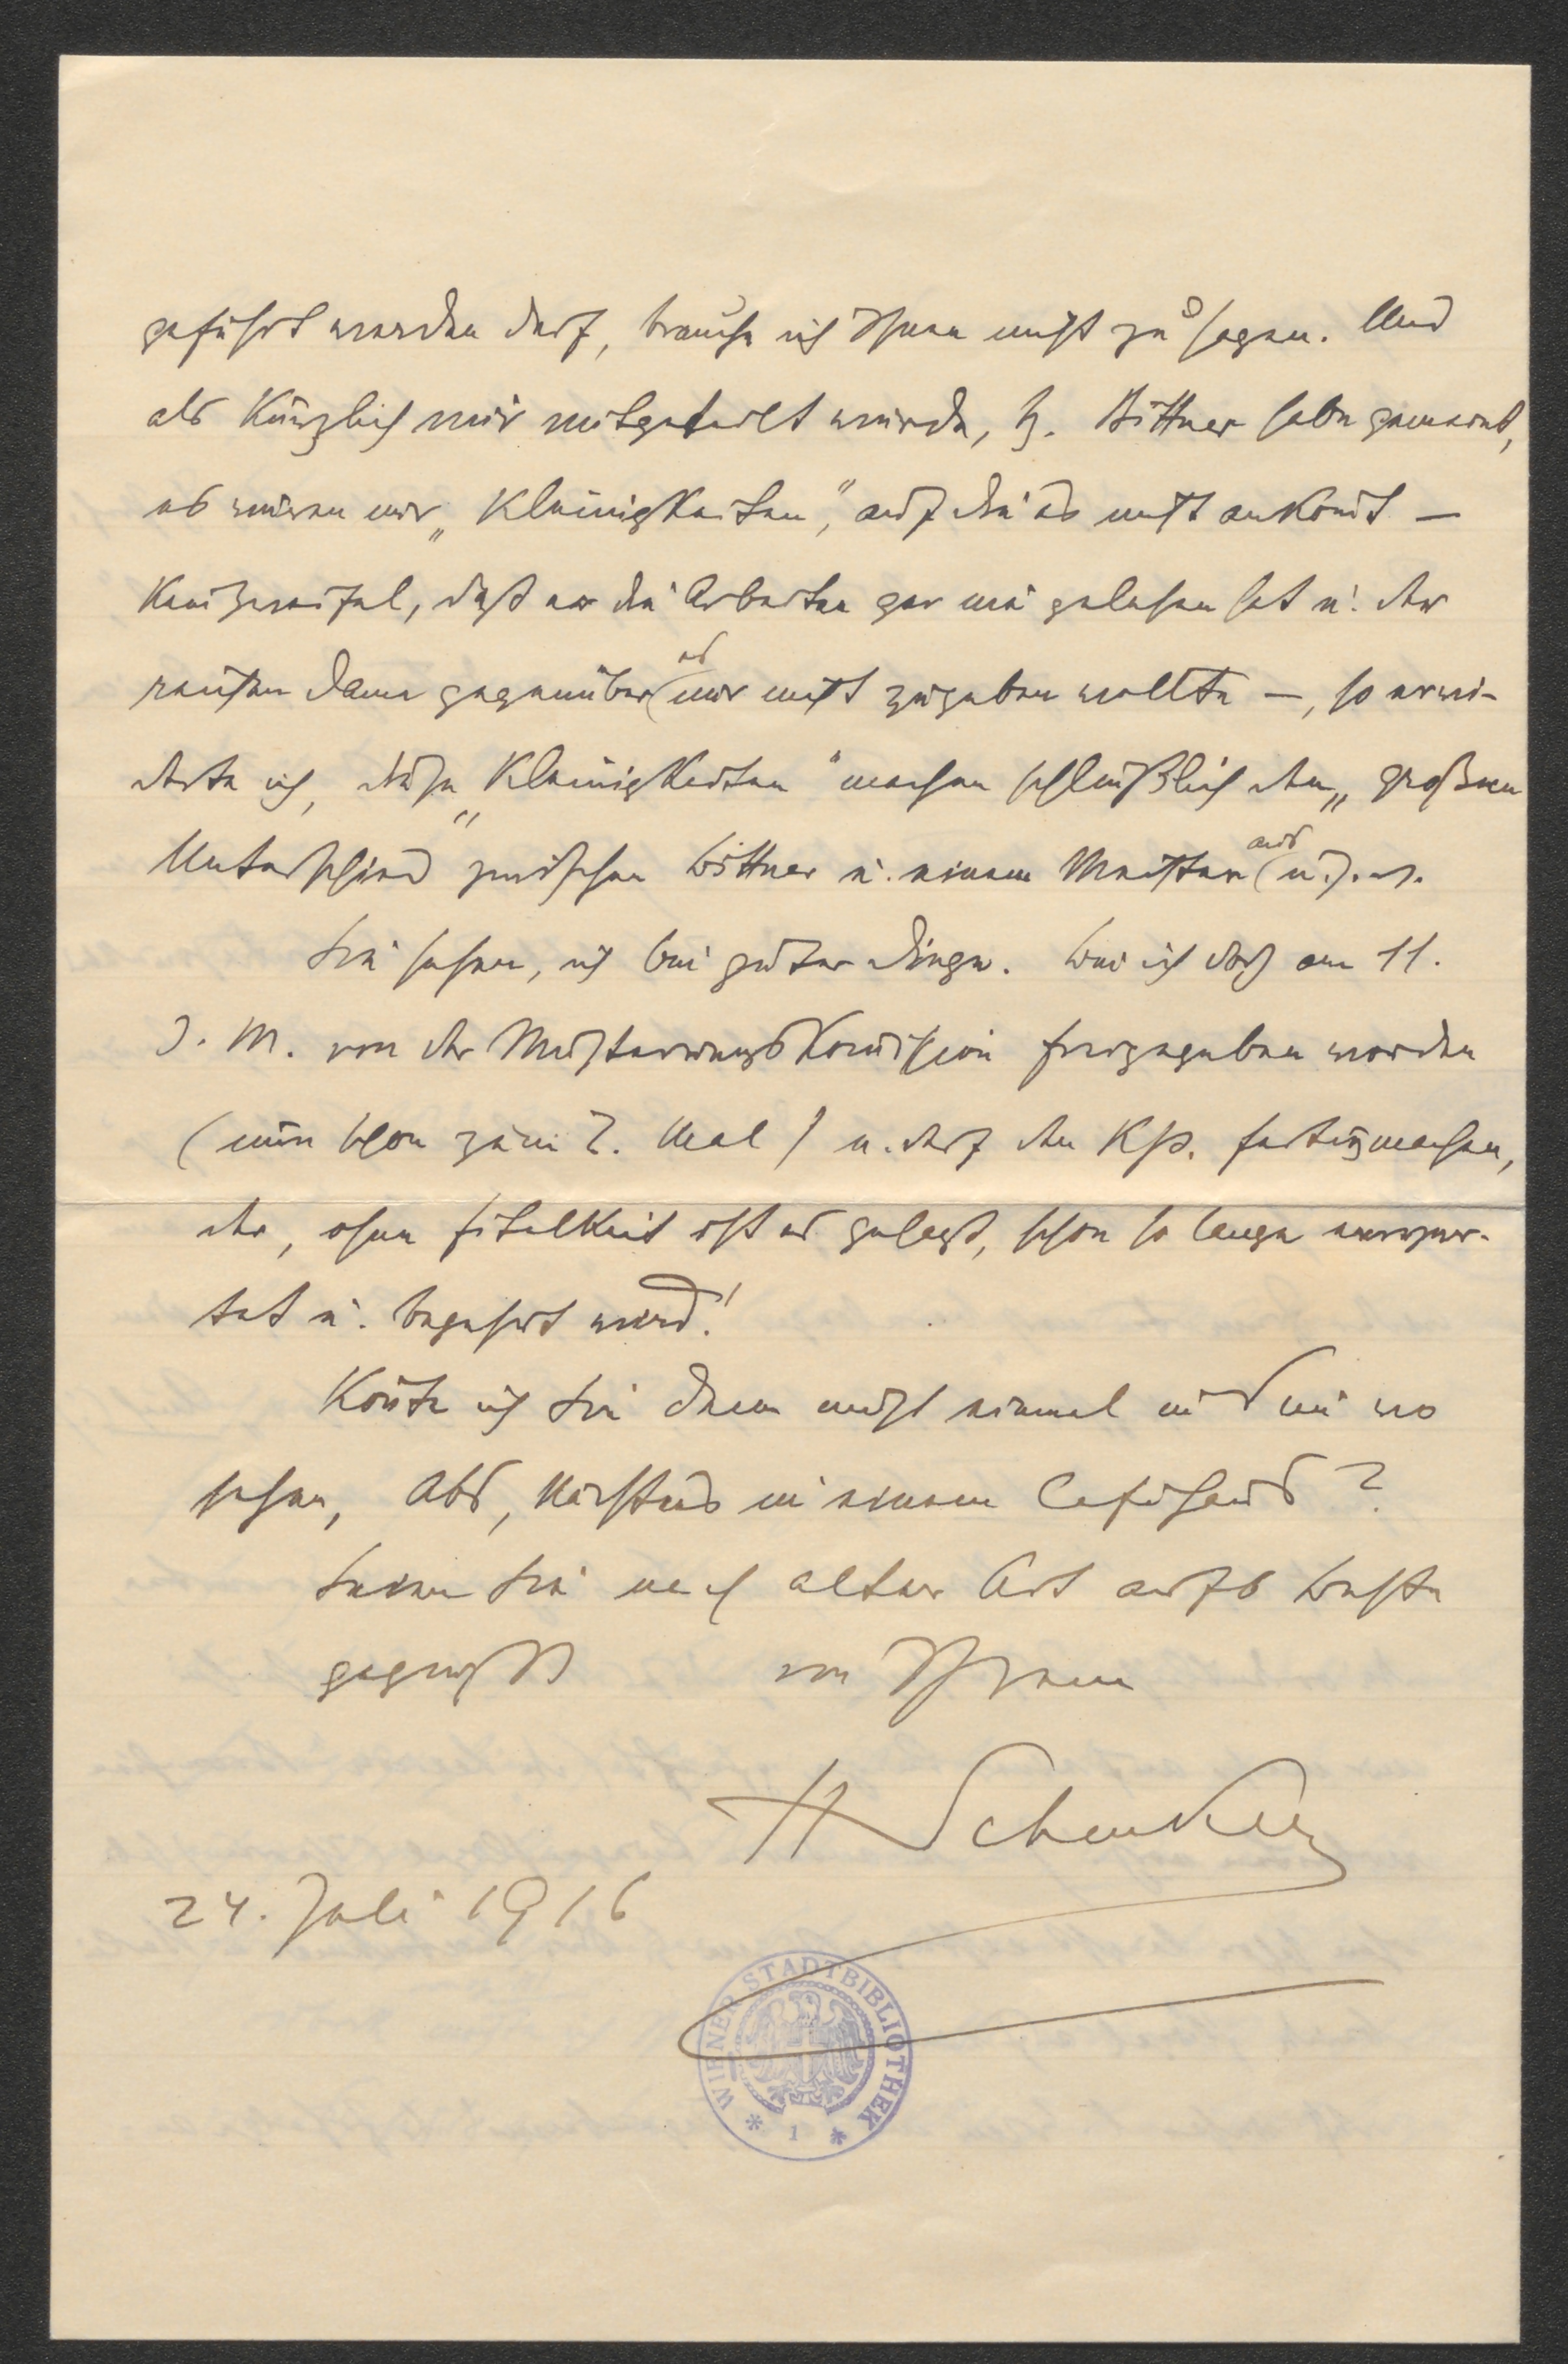 geführt werden darf, brauche ich Ihnen nicht zu sagen. Und
als kürzlich mir mitgeteilt wurde, H. Bittner habe gemeint,
es wären nur „Kleinigkeiten“, auf die es nicht ankom̄t –
kein Zweifel, daß er die Arbeiten gar nie gelesen hat u. der
reichen Dame gegenüber es nur nicht zugeben wollte –, so erwi-
derte ich, diese „Kleinigkeiten“ machen schließlich den „großen
Unterschied zwischen Bittner u. einem Meister aus u.s.w.
Sie sehen, ich bin guter Dinge. Bin ich doch am 11.
d. M. von der Musterungskom̄ission freigegeben worden
(nun schon zum 2. Mal) u. darf den Kp. fertigmachen,
der, ohne Eitelkeit ist es gesagt, schon so lange erwar-
tet u. begehrt wird!
Kön̄te ich Sie denn nicht einmal irgendwo
sehen, Abds, höchstens in einem Caféhaus?
Seien Sie nach alter Art aufs beste
gegrüßt von Ihrem
H Schenker
24. Juli 1916
WIENER STADTBIBLIOTHEK
* 1 *